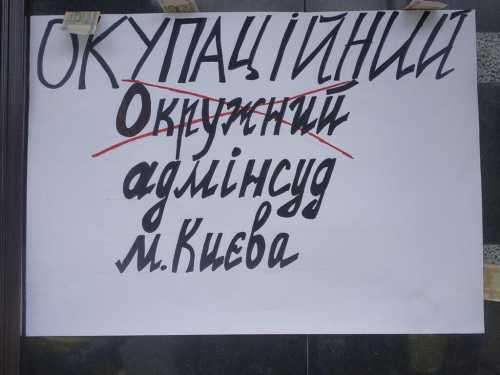 ОКУПАЦІЙНИЙ
Окружний
адмінсуд
м. Києва